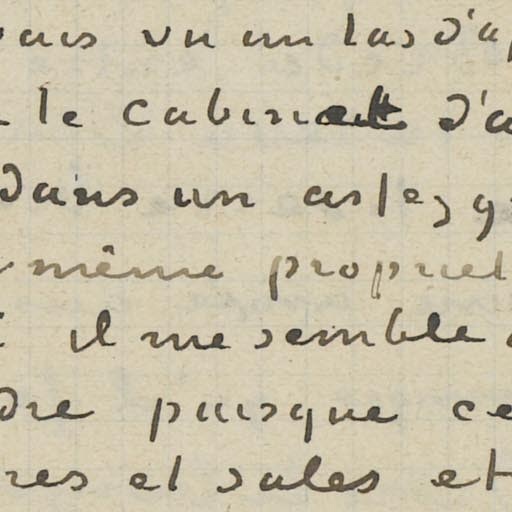 vais vu un tas d'ap
le cabinet d'a
dans un assez g
même propriet
il me semble
dre puisque ce
res et sales et